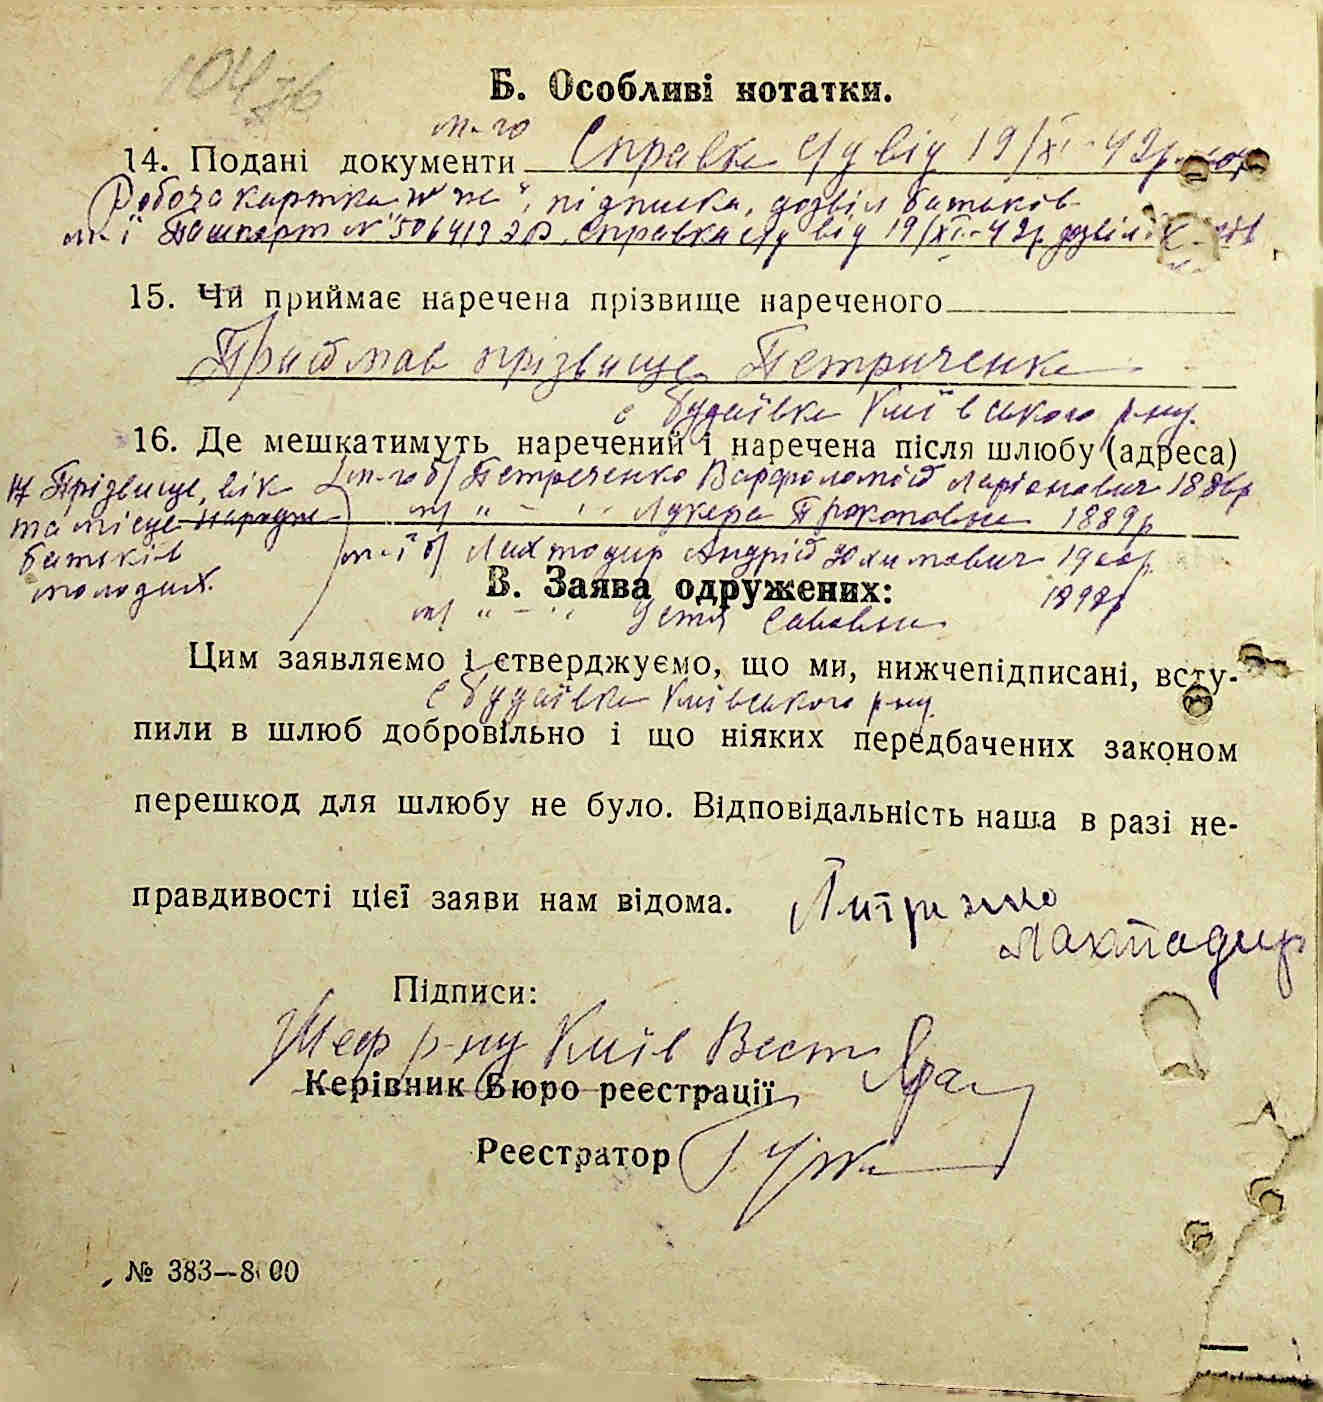 104 зв
Б. Особливі нотатки.
м-го
14. Подані документи Справка с/у від 19/XI-42р.
Робоча картка № , підписка, дозвіл батьків
м-ї Пашпорт № 506419 Справка с/у від 19/XI-42р. дозвіл
15. Чи приймає наречена прізвище нареченого
Приймає прізвище Петриченко
с Будаївка Київського р-ну.
16. Де мешкатимуть наречений і наречена після шлюбу (адреса)
Прізвище, вік м-го б/ Петреченко Варфоломій Ларіонович 1886р
та місце народже м/ " — " Лукера Прокоповна 1889р
батьків м-ї б/ Лахтодир Андрій Юхимович 1900р.
молодих.
В. Заява одружених:
м/ " — " Устя Савовна 1898р
Цим заявляємо і стверджуємо, що ми, нижчепідписані, всту-
с Будаївка Київського р-ну.
пили в шлюб добровільно і що ніяких передбачених законом
перешкод для шлюбу не було. Відповідальність наша в разі не-
правдивості цієї заяви нам відома.
Лахтадир
Підписи:
Шеф р-ну Київ Вест
Керівник Бюро реєстрації
Реєстратор
№ 383—8000